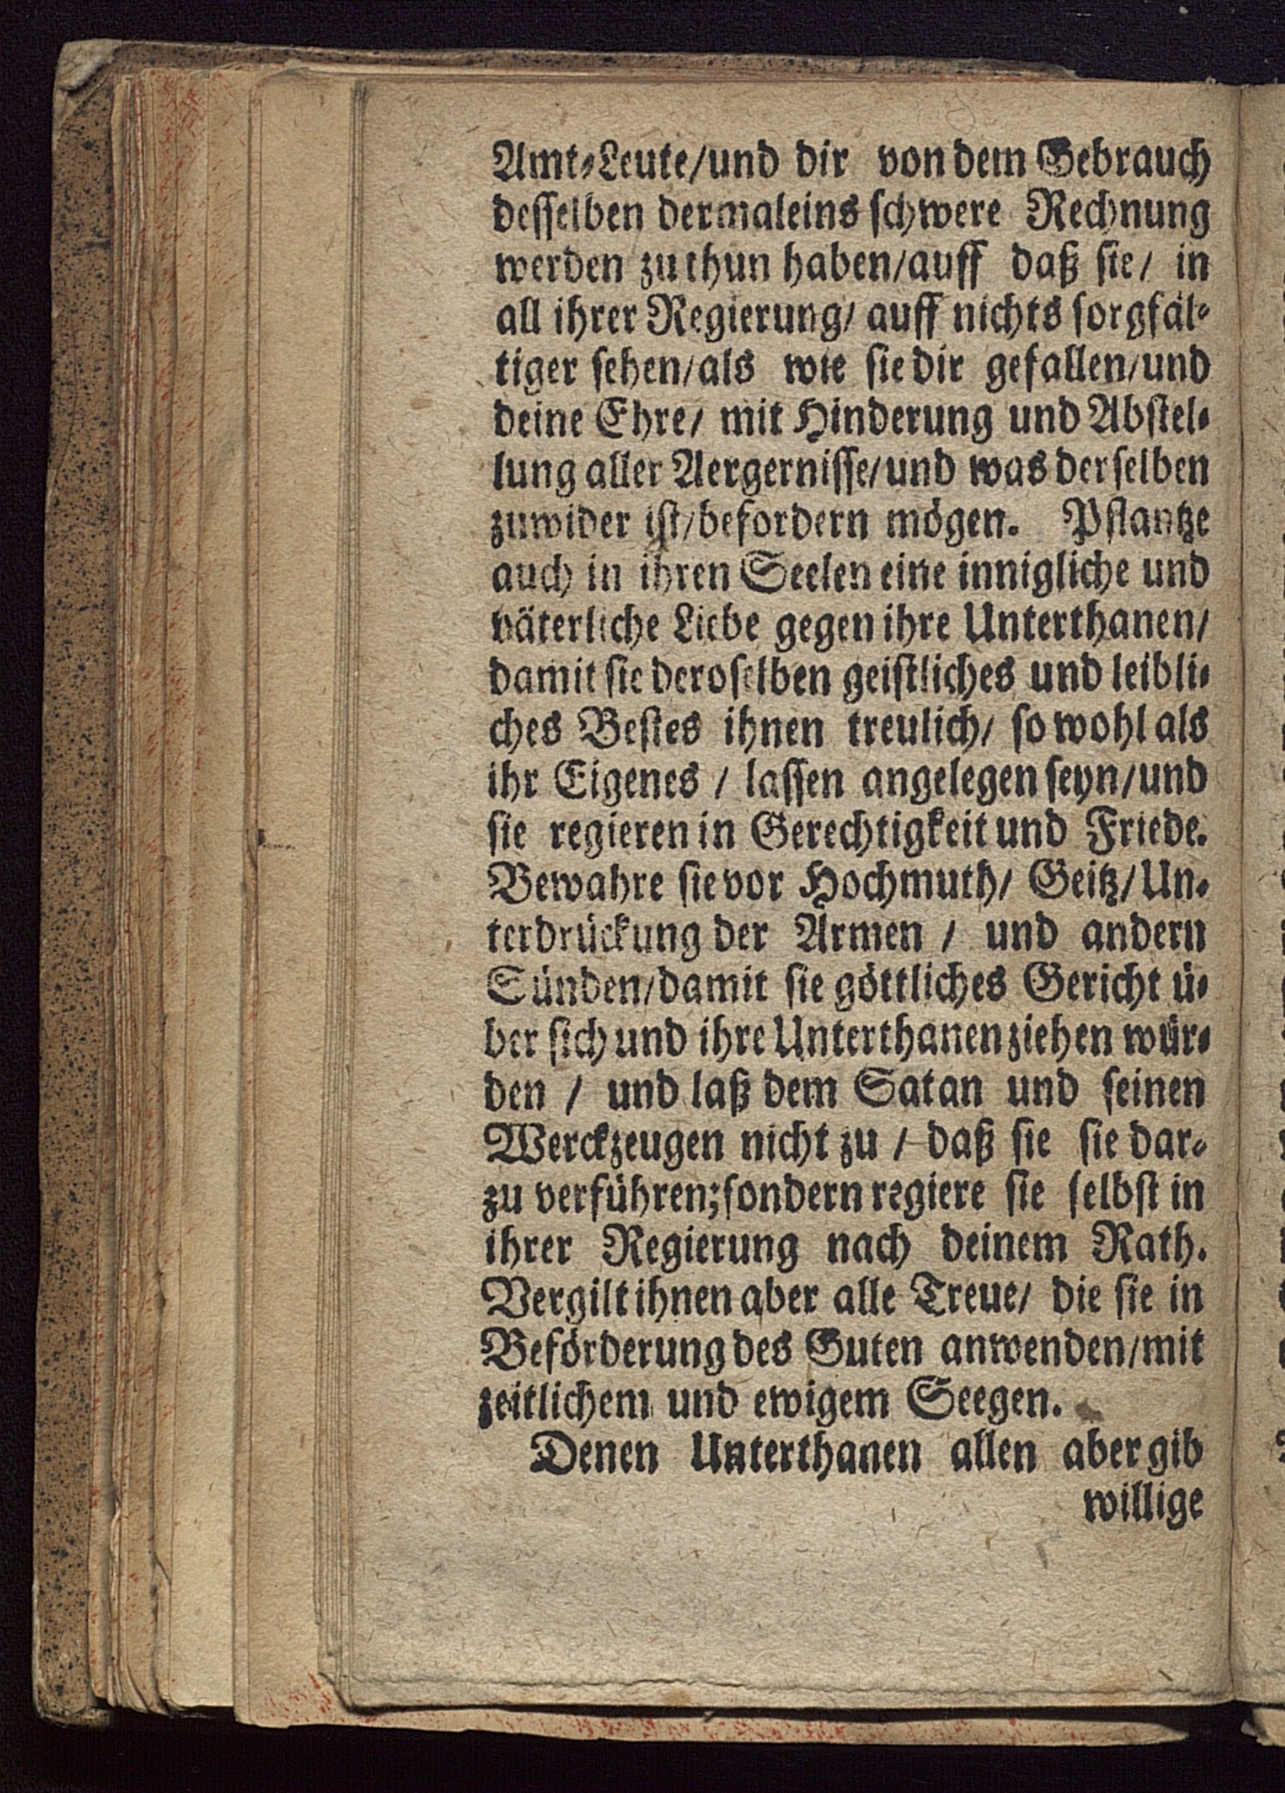 Amt-Leute/und dir von dem Gebrauch
desselben dermaleins schwere Rechnung
werden zu thun haben/auff daß sie/ in
all ihrer Regierung/ auff nichts sorgfäl-
tiger sehen/als wie sie dir gefallen/und
deine Ehre/ mit Hinderung und Abstel-
lung aller Aergernisse/und was derselben
zuwider ist/befordern mögen. Pflantze
auch in ihren Seelen eine innigliche und
väterliche Liebe gegen ihre Unterthanen/
damit sie deroselben geistliches und leibli-
ches Bestes ihnen treulich/ so wohl als
ihr Eigenes / lassen angelegen seyn/und
sie regieren in Gerechtigkeit und Friede.
Bewahre sie vor Hochmuth/ Geitz/Un-
terdrückung der Armen / und andern
Sünden/damit sie göttliches Gericht ü-
ber sich und ihre Unterthanen ziehen wür-
den / und laß dem Satan und seinen
Werckzeugen nicht zu / daß sie sie dar-
zu verführen;sondern regiere sie selbst in
ihrer Regierung nach deinem Rath.
Vergilt ihnen aber alle Treue/ die sie in
Beförderung des Guten anwenden/mit
zeitlichem und ewigem Seegen.
Denen Unterthanen allen aber gib
willige